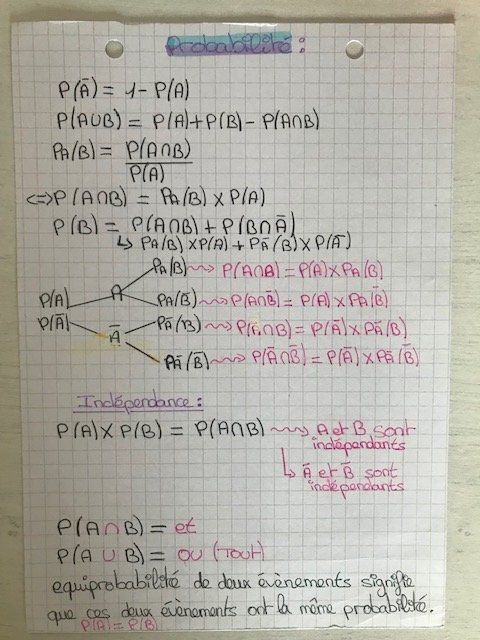 Probabilité :
P(Ā) = 1 - P(A)
P(A∪B) = P(A)+P(B) - P(A∩B)
PA(B) = P(A∩B)/P(A)
<=> P(A∩B) = PA(B) X P(A)
P(B) = P(A∩B) + P(B∩Ā)
↳ PA(B) X P(A) + PĀ(B) X P(Ā)
PA(B) ⇝ P(A∩B) = P(A) X PA(B)
P(A) A PA(B̄) ⇝ P(A∩B̄) = P(A) X PA(B̄)
P(Ā) Ā PĀ(B) ⇝ P(Ā∩B) = P(Ā) X PĀ(B)
PĀ(B̄) ⇝ P(Ā∩B̄) = P(Ā) X PĀ(B̄)
Indépendance :
P(A) X P(B) = P(A∩B) ⇝ A et B sont
indépendants
↳ Ā et B̄ sont
indépendants
P(A∩B) = et
P(A∪B) = ou (TOUT)
equiprobabilité de deux évènements signifie
que ces deux évènements ont la même probabilité.
P(A) = P(B)